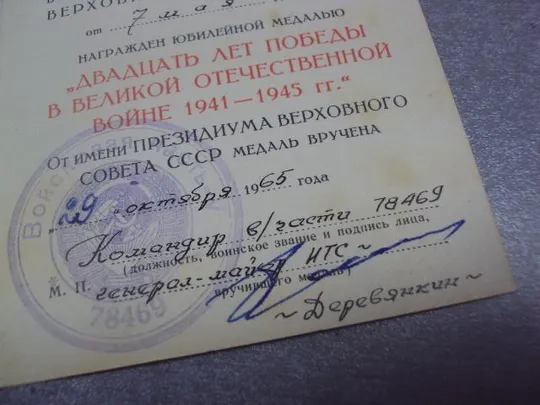 ВЕРХОВ
от 7 мая
НАГРАЖДЕН ЮБИЛЕЙНОЙ МЕДАЛЬЮ
„ДВАДЦАТЬ ЛЕТ ПОБЕДЫ
В ВЕЛИКОЙ ОТЕЧЕСТВЕННОЙ
ВОЙНЕ 1941—1945 гг.“
От имени ПРЕЗИДИУМА ВЕРХОВНОГО
СОВЕТА СССР МЕДАЛЬ ВРУЧЕНА
„29 октября 1965 года
Командир в/части 78469
(должность, воинское звание и подпись лица,
М. П. генерал-майор ИТС
вручившего медаль)
~ Деревянкин ~
Войсковая часть
78469